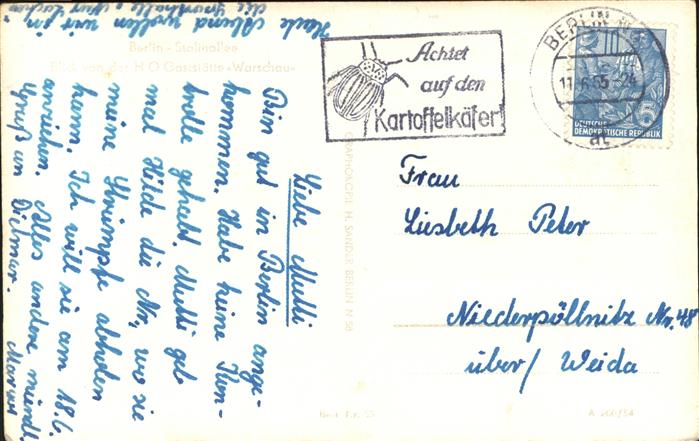 Heute Abend wollen wir in
die Sporthalle.
Berlin - Stalinallee
Blick von der H O Gaststätte »Warschau«
Liebe Mutti
Bin gut in Berlin ange-
kommen. Habe keine Kon-
trolle gehabt. Mutti gib
mal Hilde die Nr, wo sie
meine Strümpfe abholen
kann. Ich will sie am 18.6.
anziehen. Alles andere mündl.
Gruß an Dietmar.
Margot
GRAPHOKOPIE H. SANDER BERLIN N 58
Best. Nr. 55
Achtet
auf den
Kartoffelkäfer!
BERLIN
11.6.55-24
at
15
DEUTSCHE
DEMOKRATISCHE REPUBLIK
Frau
Liesbeth Peter
Niederpöllnitz Nr. 48
über/ Weida
A 260/54